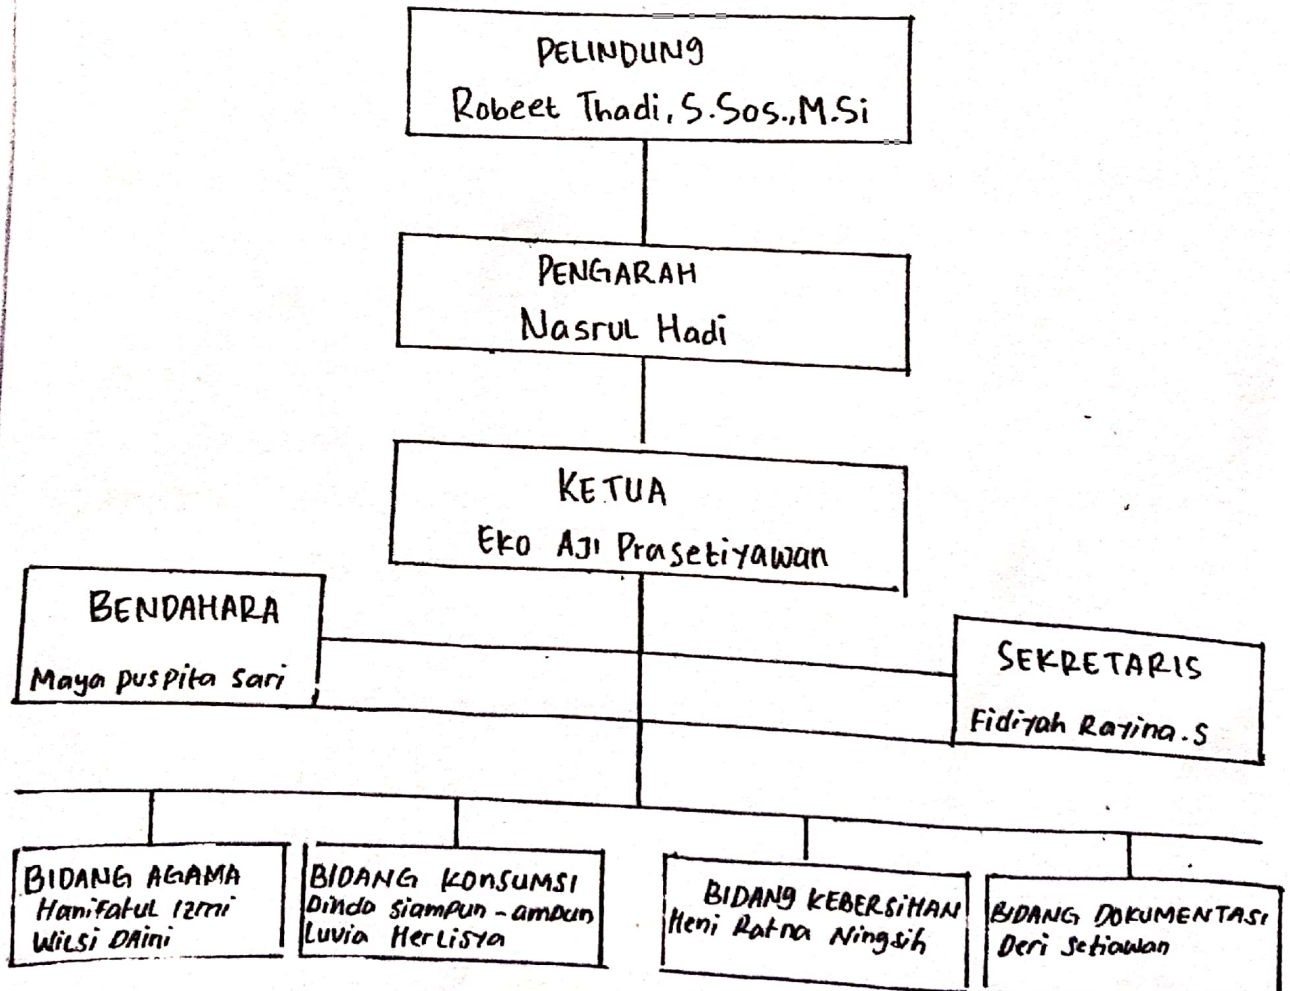 PELINDUNG
Robeet Thadi, S.Sos., M.Si
PENGARAH
Nasrul Hadi
KETUA
Eko Aji Prasetiyawan
BENDAHARA
Maya puspita sari
SEKRETARIS
Fidiyah Rayina.S
BIDANG AGAMA
Hanifatul Izmi
Wilsi DAini
BIDANG KONSUMSI
Dinda Siampun-ampun
Luvia Herlisya
BIDANG KEBERSIHAN
Heni Ratna Ningsih
BIDANG DOKUMENTASI
Deri Setiawan